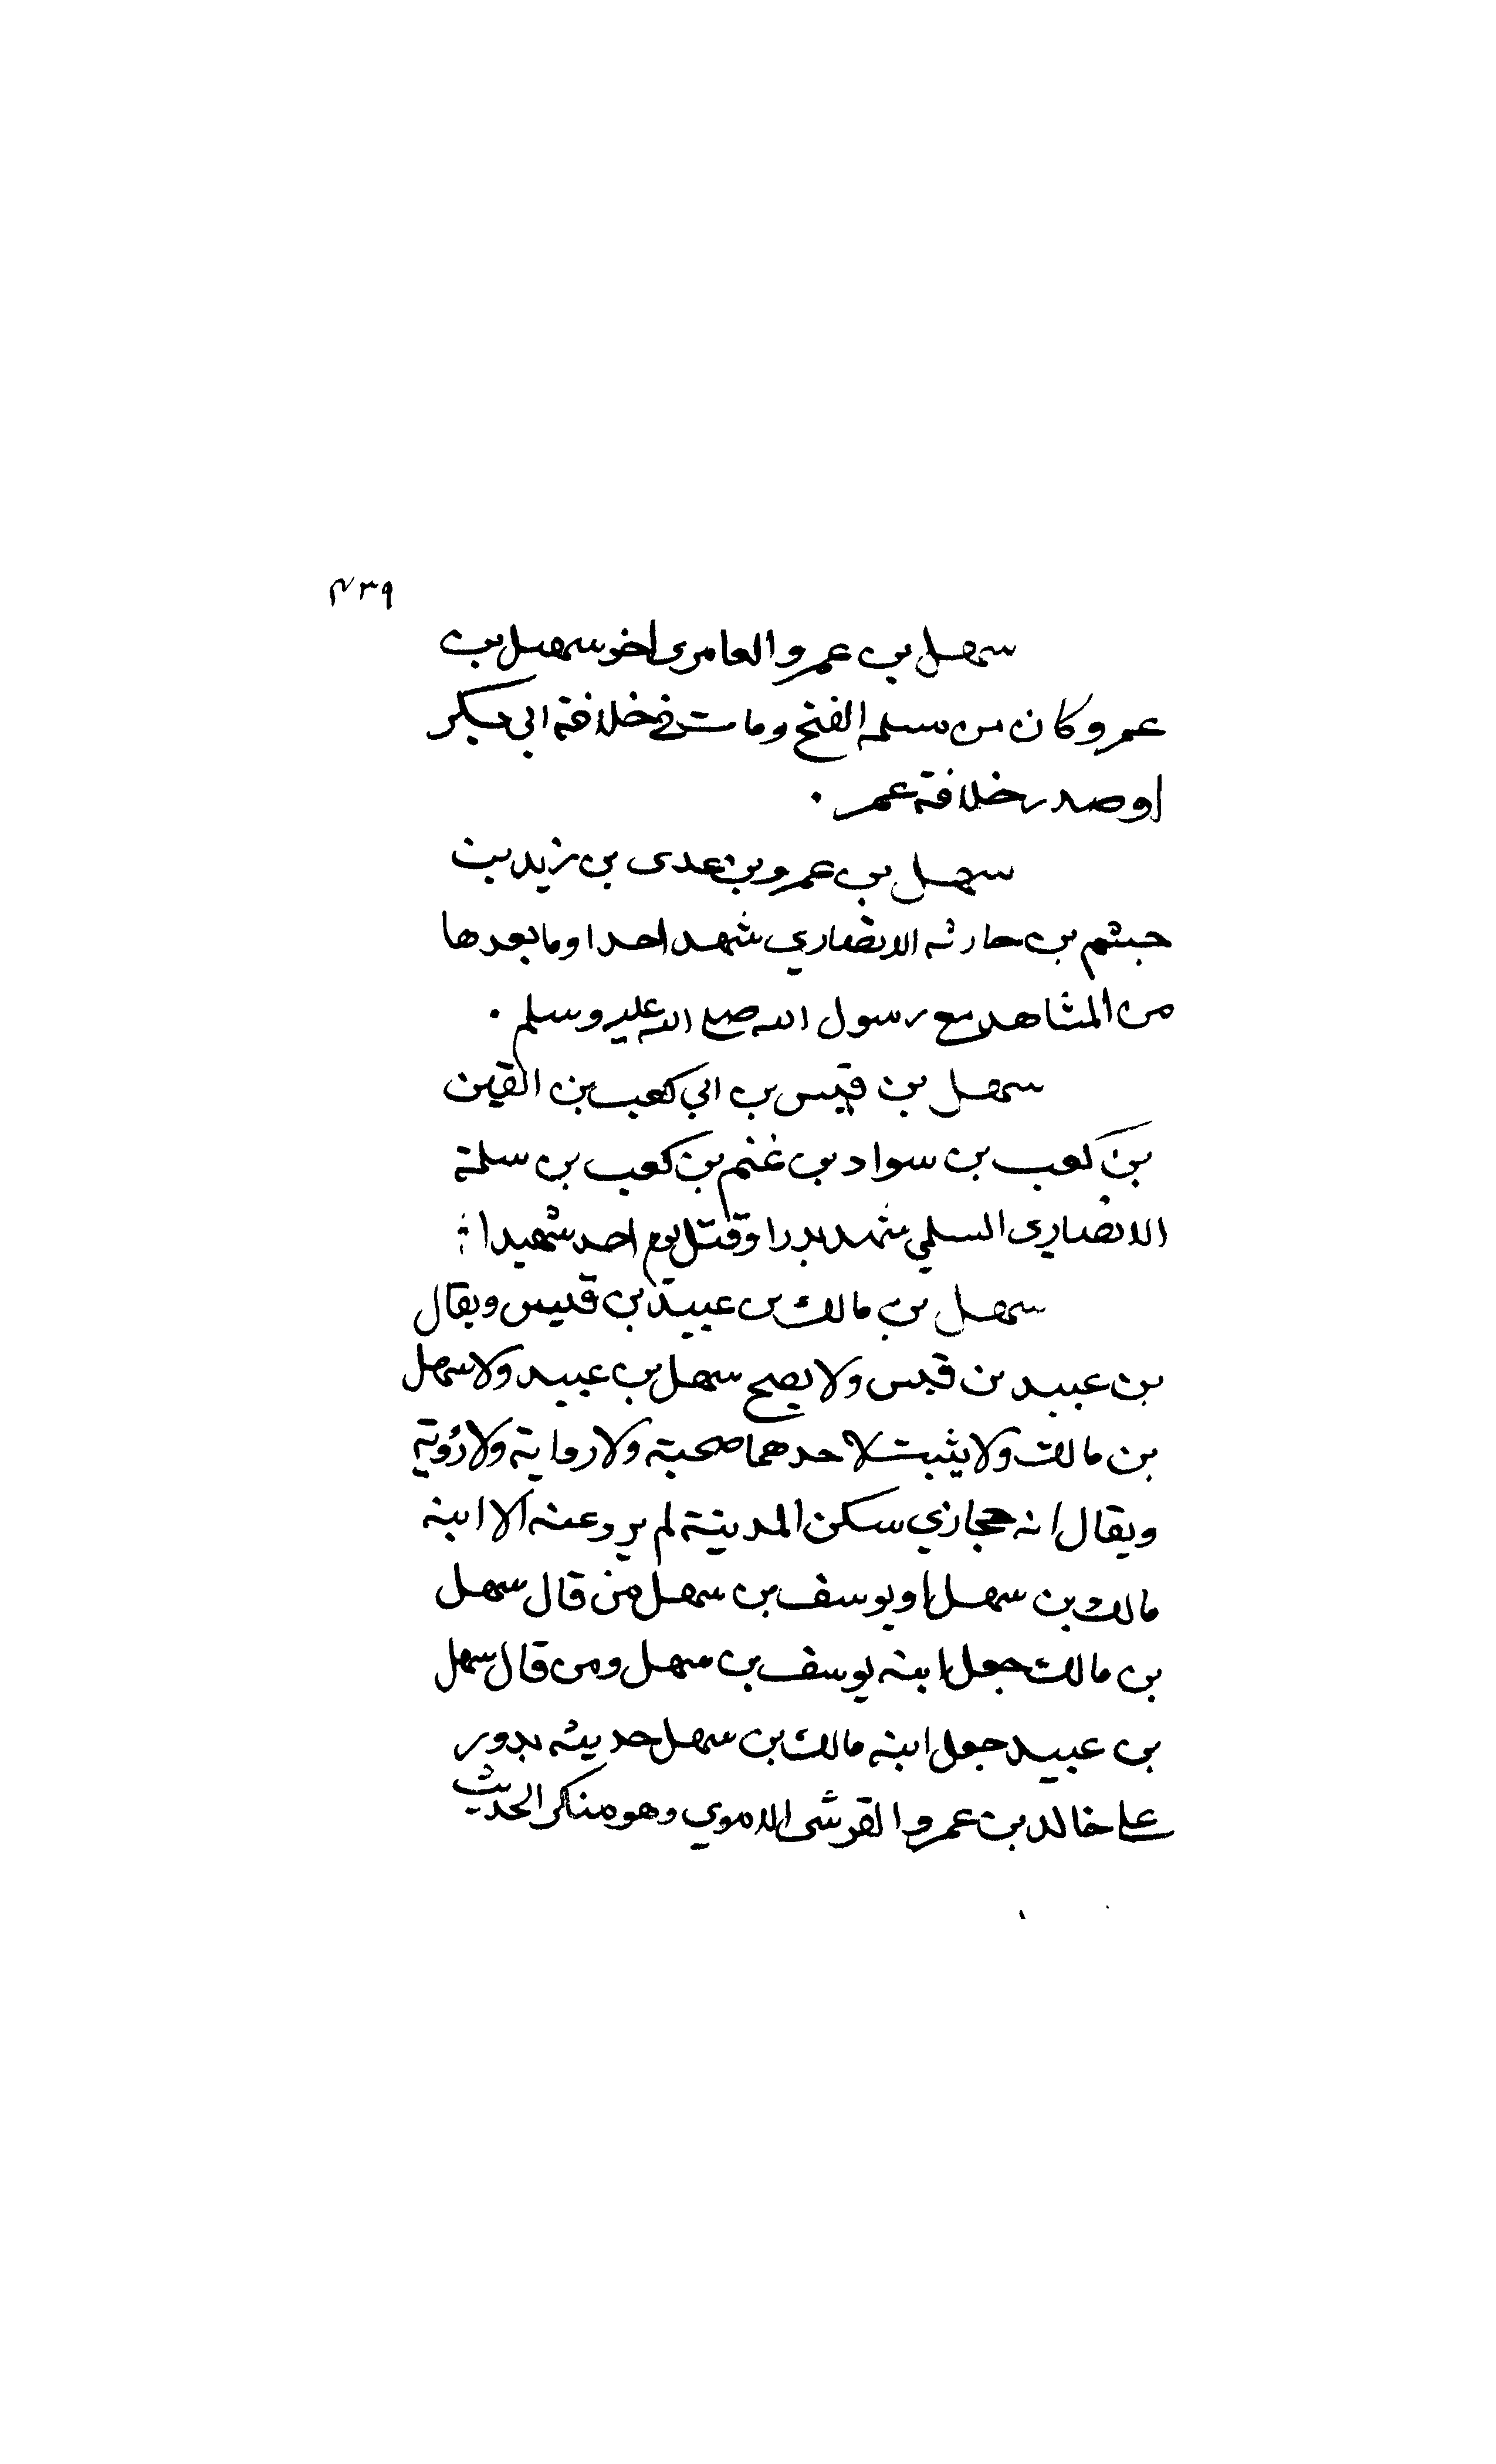 ٤٣٩
سهل بن عمرو العامرى اخو سهيل بن
عمرو كان من مسلمة الفتح ومات في خلافة ابي بكر
او صدر خلافة عمر .
سهل بن عمرو بن عدى بن زيد بن
جشم بن حارثه الانصاري شهد احدا وما بعدها
من المشاهد مع رسول الله صلى الله عليه وسلم .
سهل بن قيس بن ابي كعب بن القين
بن كعب بن سواد بن غنم بن كعب بن سلمة
الانصاري السلمي شهد بدرا وقتل يوم احد شهيدا
سهل بن مالك بن عبيد بن قيس ويقال
بن عبيد بن قيس ولا يصح سهل بن عبيد ولا سهل
بن مالك ولا يثبت لاحدهما صحبة ولا رواية ولا رؤية
ويقال انه حجازي سكن المدينة لم يرو عنه الا ابنه
مالك بن سهل او يوسف بن سهل من قال سهل
بن مالك جعل ابنه يوسف بن سهل ومن قال سهل
بن عبيد جعل ابنه مالك بن سهل حديثه يدور
على خالد بن عمرو القرشى الاموي وهو منكر الحديث